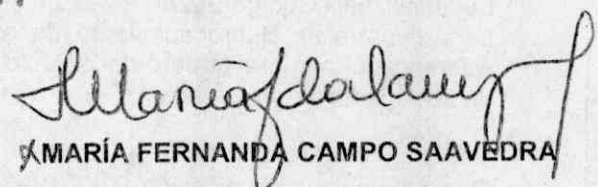 MARÍA FERNANDA CAMPO SAAVEDRA